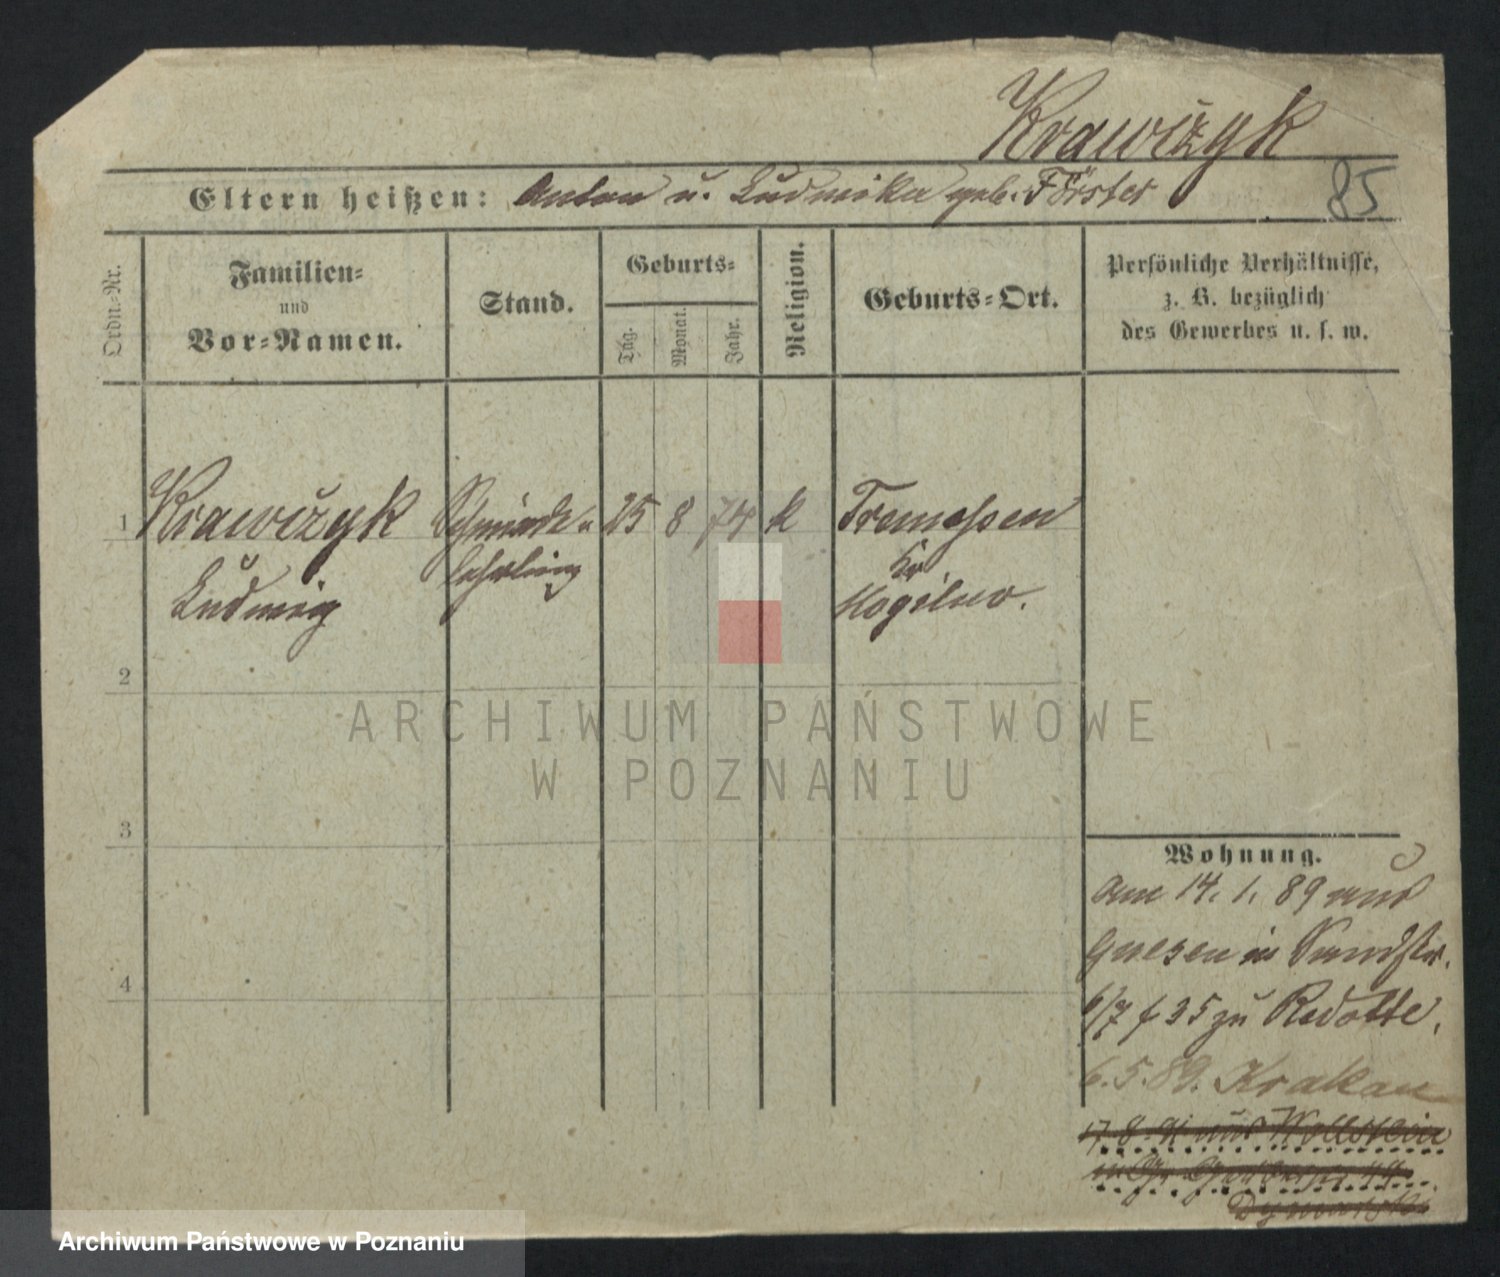 Krawczyk
Eltern heißen: Anton u. Ludwika geb. Förster
85
Ordn.=Nr.
Familien=
und
Vor=Namen.
Stand.
Geburts=
Tag.
Monat.
Jahr.
Religion.
Geburts=Ort.
Persönliche Verhältnisse,
z. B. bezüglich
des Gewerbes u. s. w.
1 Krawczyk Schmiede= 25 8 74 k Tremessen
Ludwig lehrling Kr
Mogilno.
2
3
4
Wohnung.
am 14. 1. 89 aus
Gnesen in Sandstr.
6/7 f 35 zu Redotte.
6. 5. 89. Krakau
17. 8. 91 aus Wollstein
ARCHIWUM PAŃSTWOWE
W POZNANIU
Archiwum Państwowe w Poznaniu